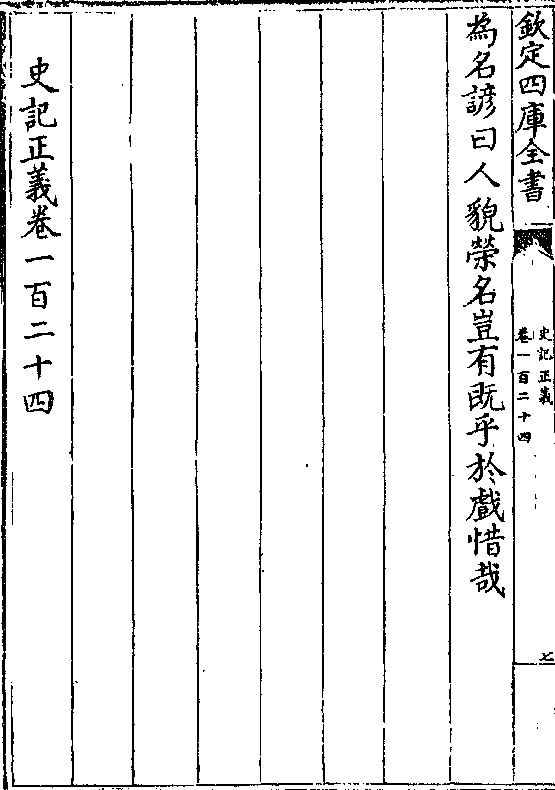 欽定四庫全書
史記正義
卷一百二十四
七
為名諺曰人貌榮名豈有既乎於戲惜哉
史記正義卷一百二十四